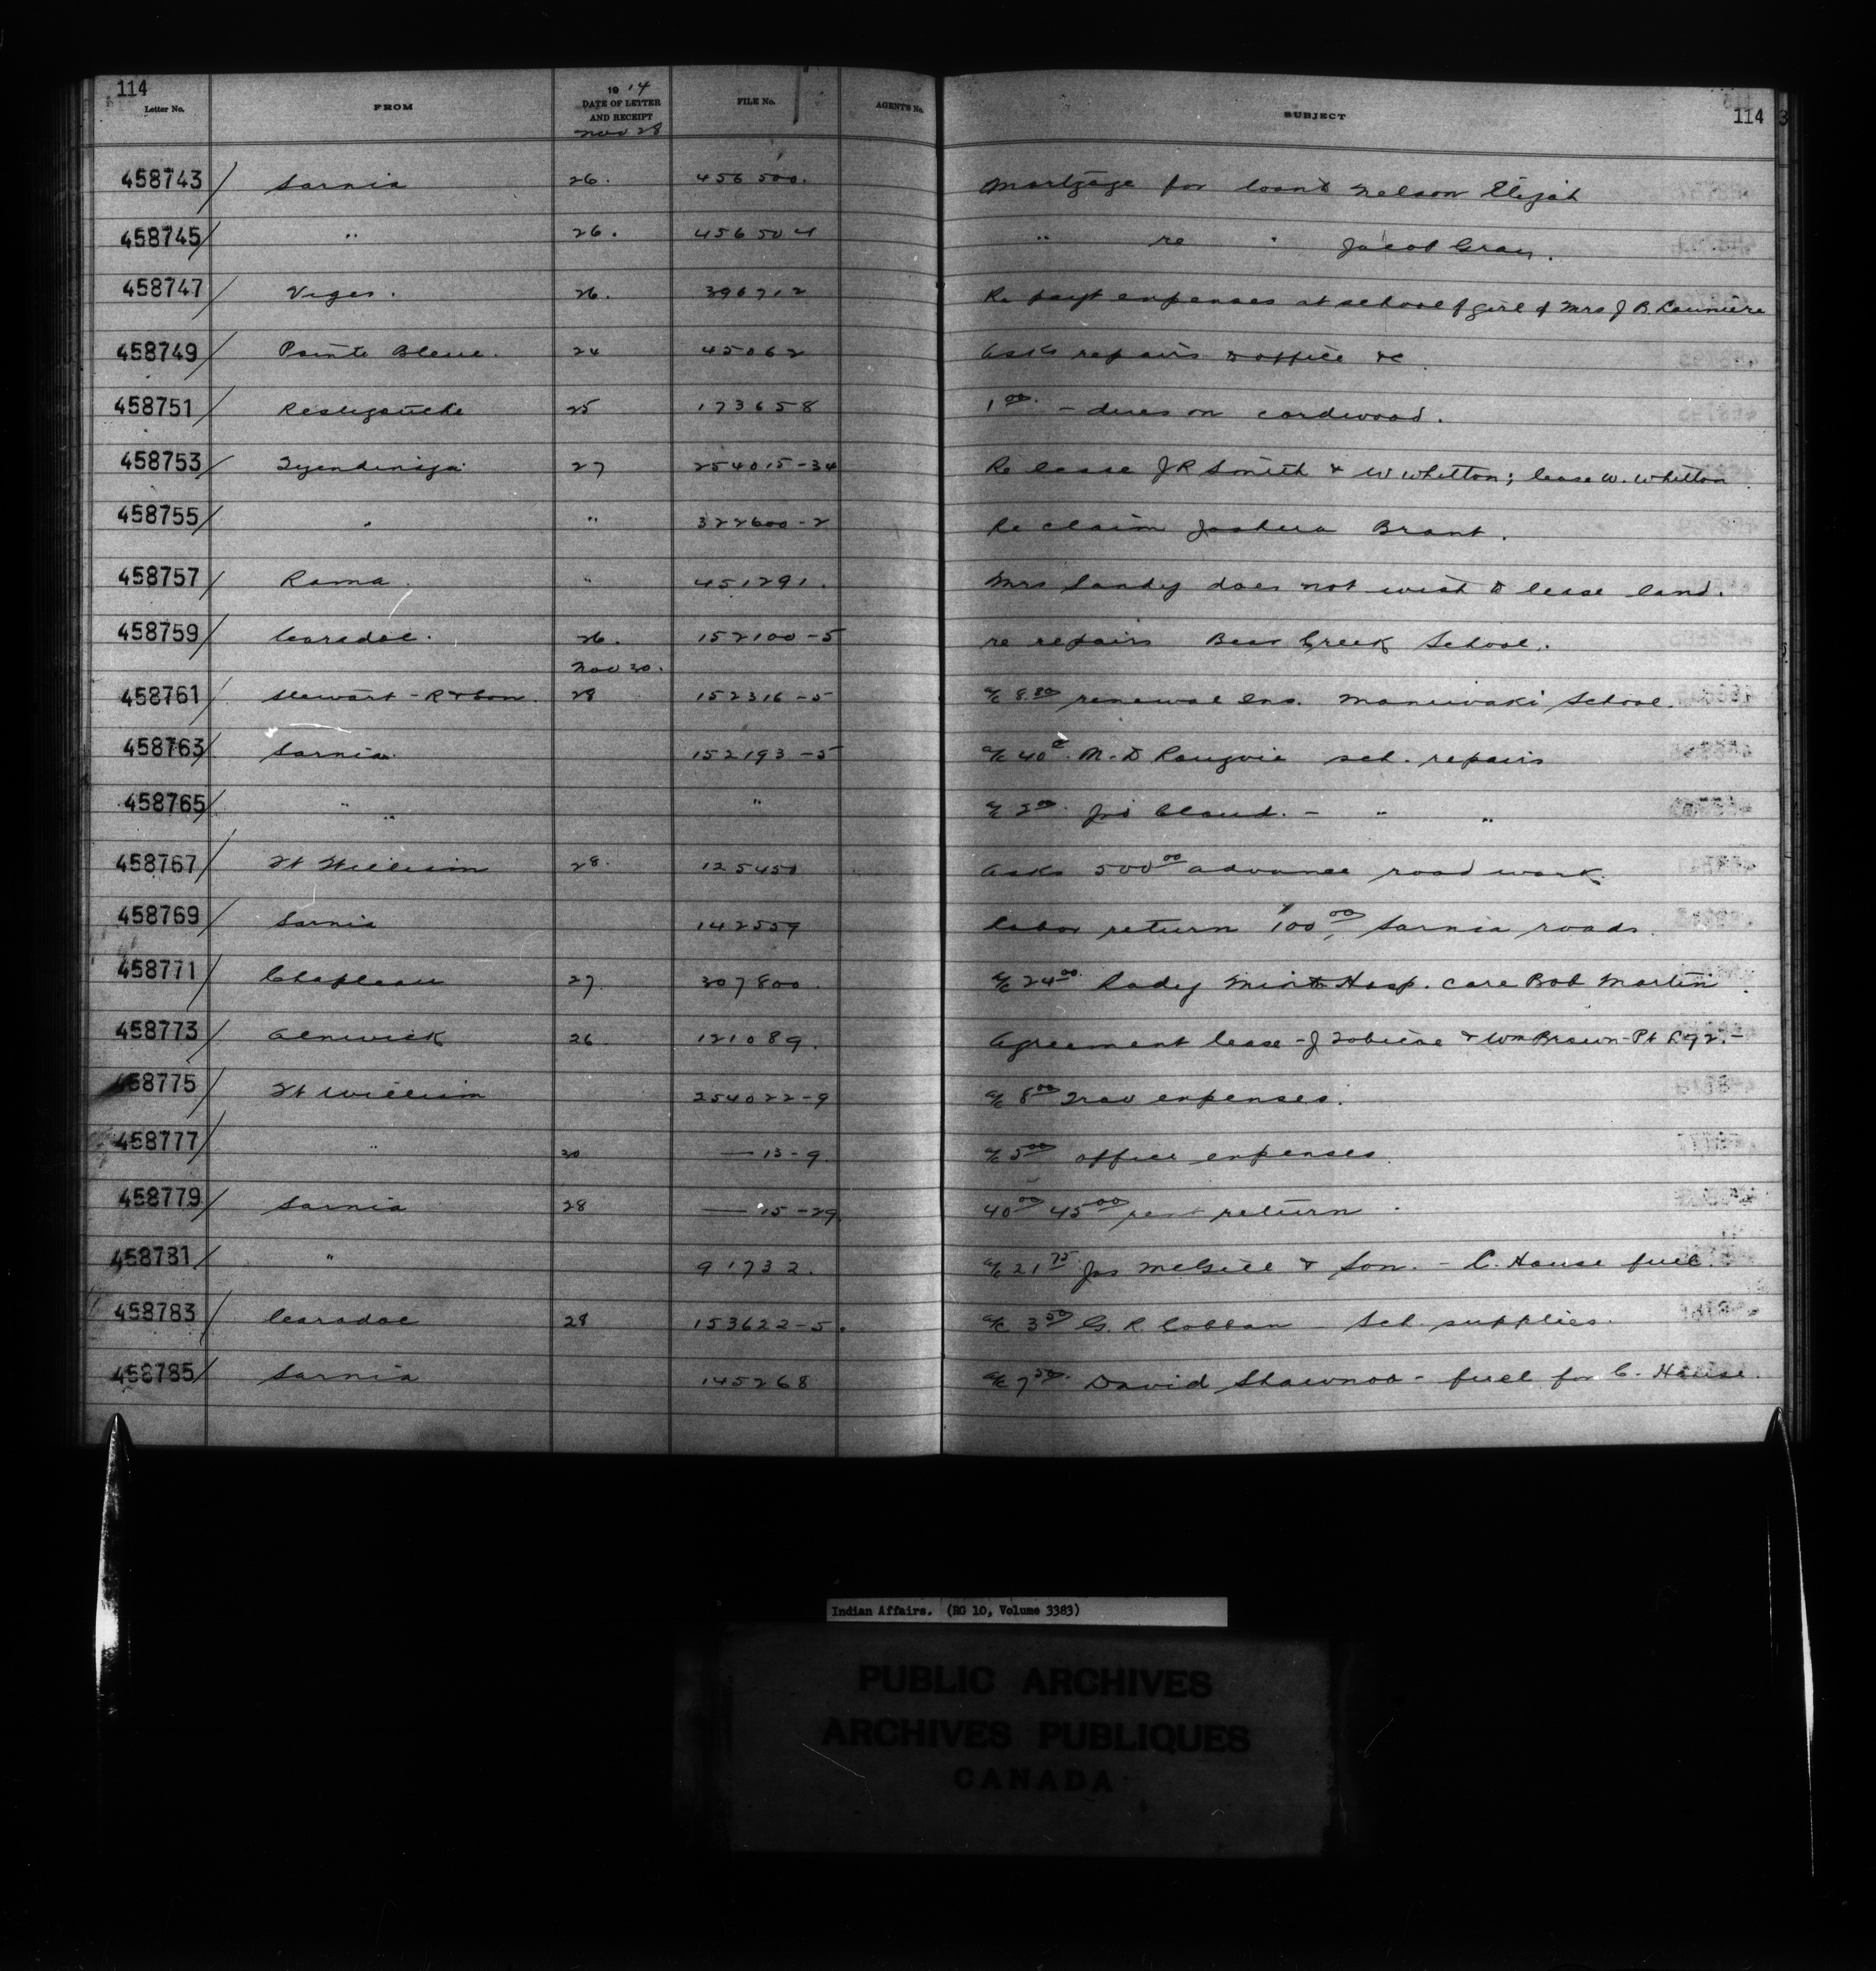 114
Letter No. FROM 1914 DATE OF LETTER AND RECEIPT FILE No. AGENT'S No. SUBJECT 114
Nov 28
458743 Sarnia 26. 456500. Mortgage for loan Nelson Elijah
458745 " 26. 456504 " re " Jacob Gray.
458747 Viger. 26. 396712 Re payt expenses at school of girl of Mrs J B
458749 Pointe Bleue. 24 45062 Asks repairs to office &c
458751 Restigouche 25 173658 1 00. - dues on cordwood.
458753 Tyendinaga 27 254015-34 Re lease J R Smith & W Whitton; lease W. Whitton
458755 " " 322600-2 Re claim Joshua Brant.
458757 Rama. " 451291. Mrs Sandy does not wish to lease land.
458759 Caradoc. 26. 152100-5 re repairs Bear Creek School.
Nov 30.
458761 Stewart - R & Son. 28 152316-5 a/c 8.80 renewal Ins. Maniwaki School.
458763 Sarnia. 152193-5 a/c 40c. M. D sch. repairs
458765 " " " a/c 2 00. Cloud. - " "
458767 Ft William 28. 125450 Asks 500 00 advance road work.
458769 Sarnia 142559 Labor return 100 00, Sarnia roads.
458771 Chapleau 27. 307800. a/c 24 00. Lady Minto Hosp. care Bob Martin.
458773 Alnwick 26 121089. Agreement lease - J Tobicoe & Wm Brown - Pt L 92. -
458775 Ft William 254022-9 a/c 8 00 Trav expenses.
458777 " 30 — 13-9. a/c 5 00 office expenses.
458779 Sarnia 28 — 15-29. 40 00 45 00 rent return.
458781 " 91732. a/c 21 75. Jas McGill & Son. - C. House fuel.
458783 Caradoc 28 153622-5. a/c 3 50 G. R. Cobban - Sch. supplies.
458785 Sarnia 145268 a/c 7 50. David Shawnoo - fuel for C. House.
Indian Affairs. (RG 10, Volume 3383)
PUBLIC ARCHIVES
ARCHIVES PUBLIQUES
CANADA